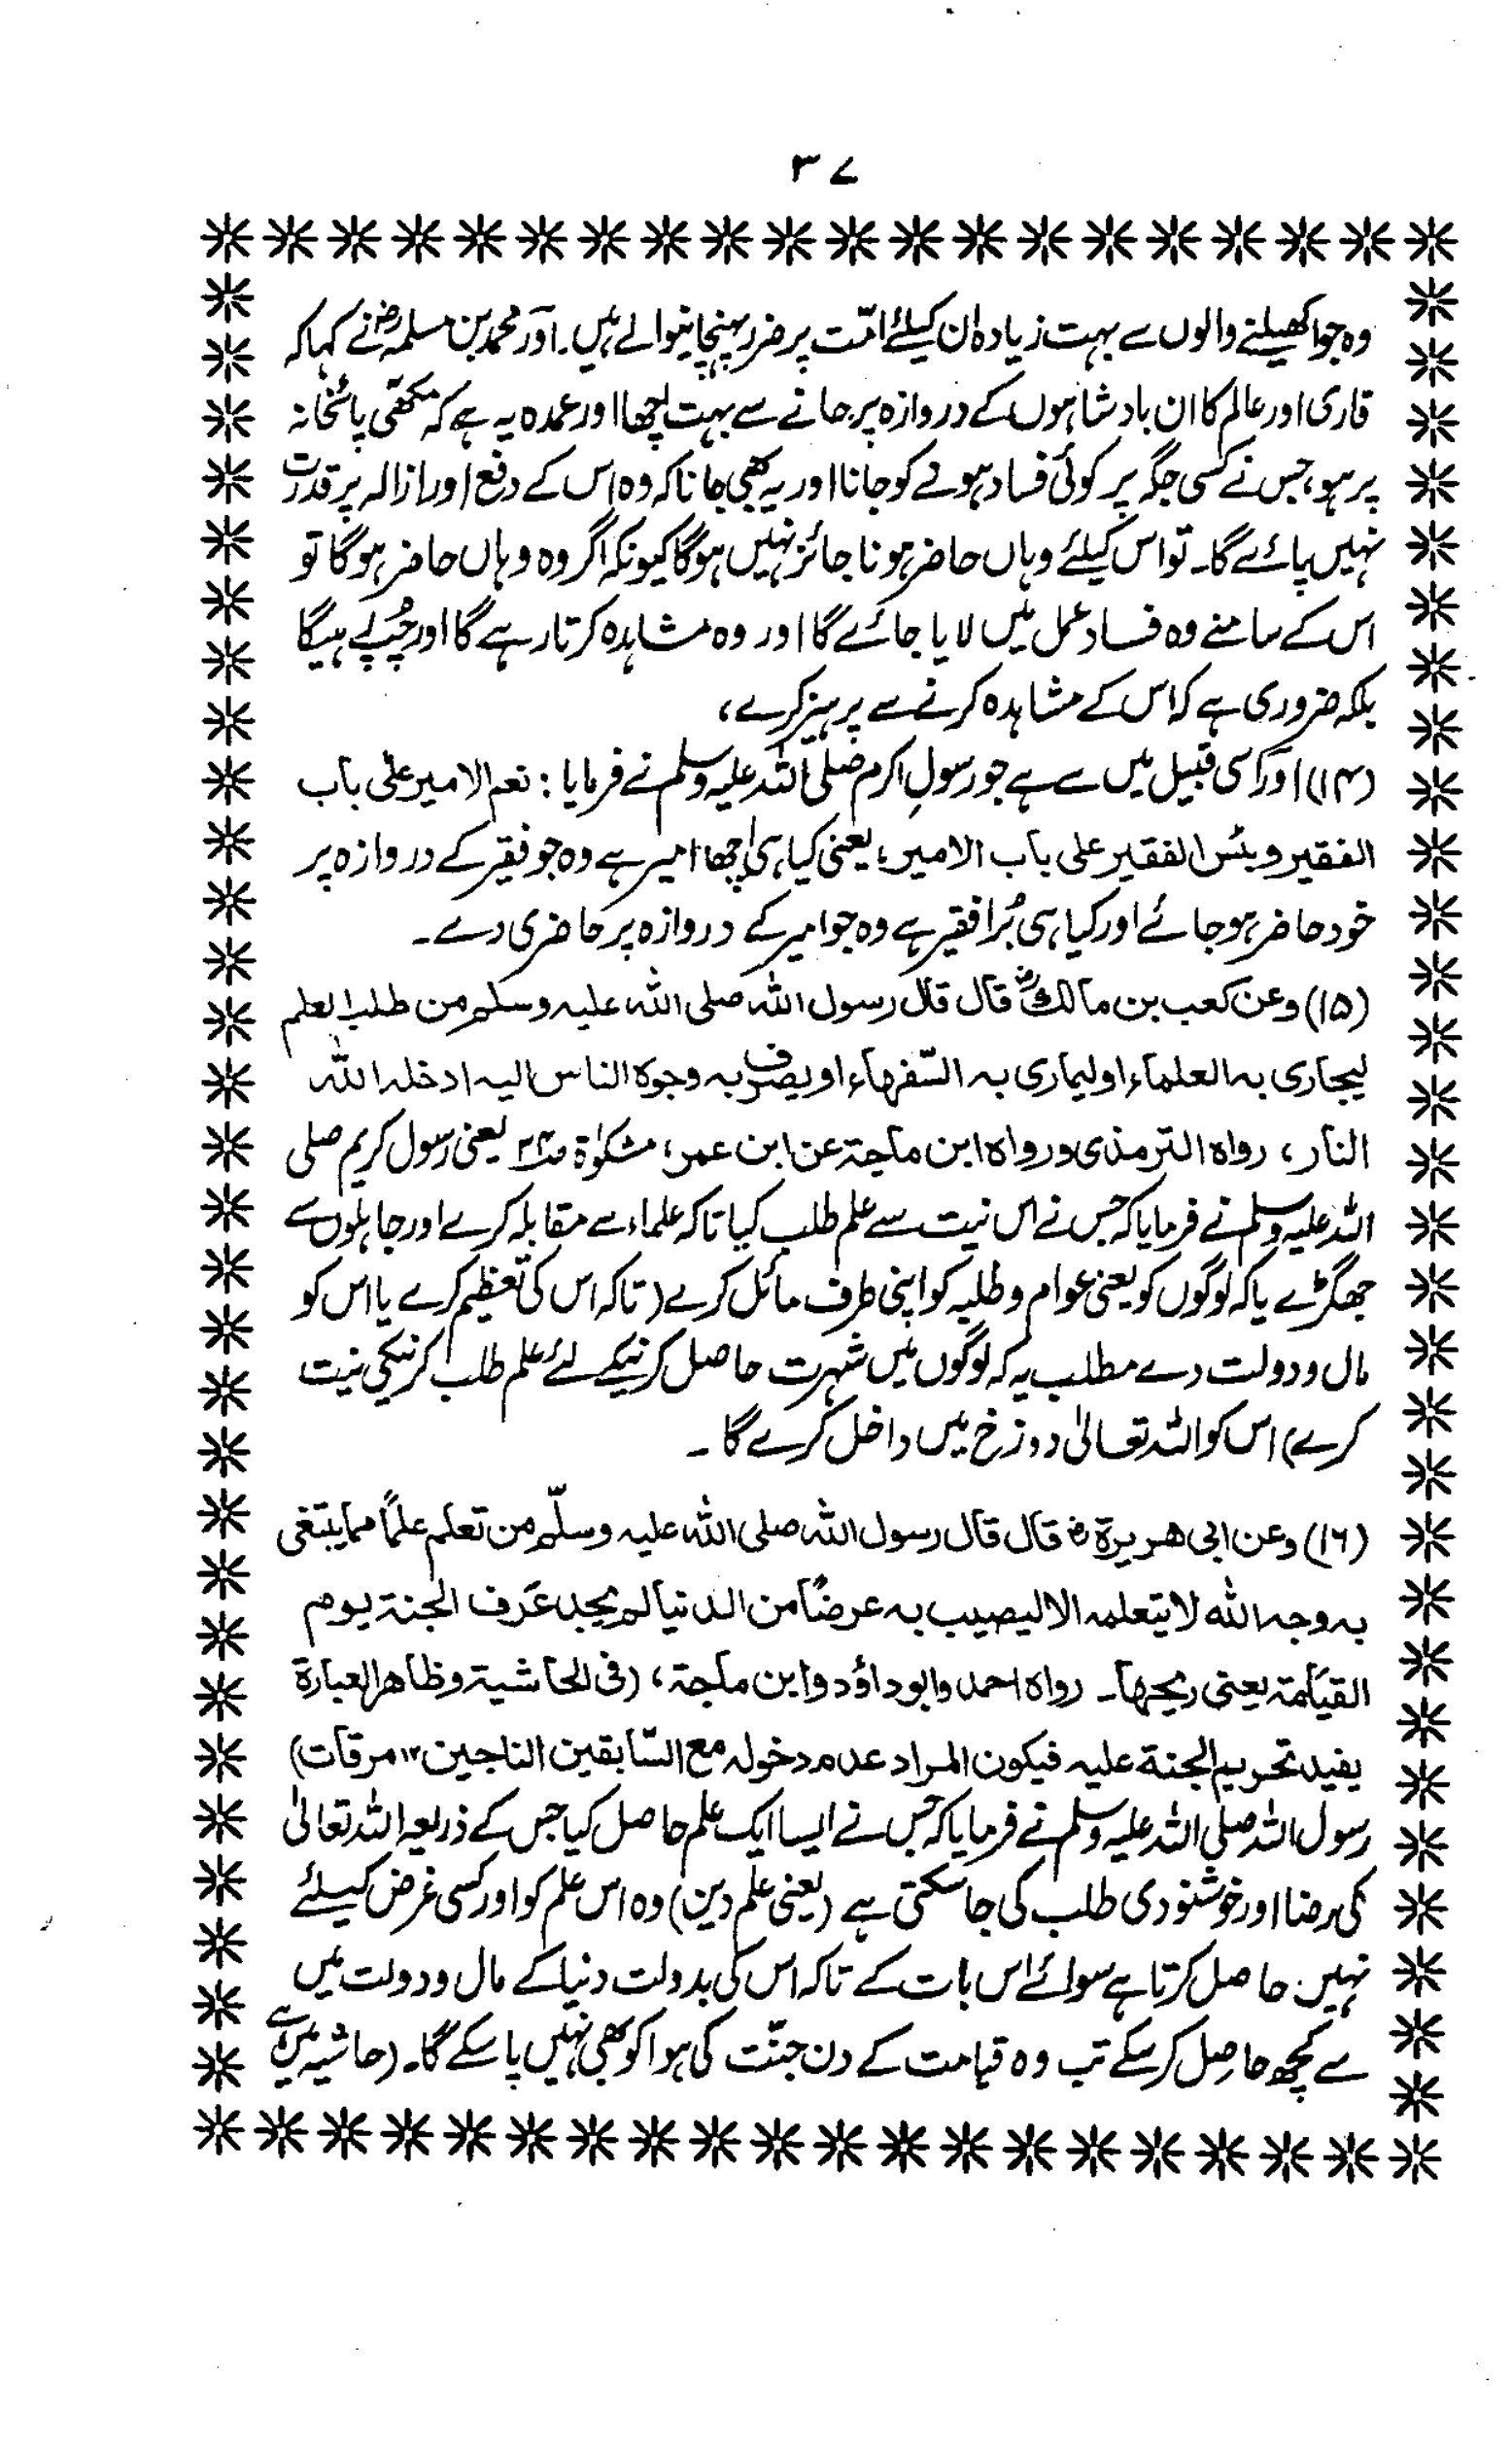 ۳۷
وہ جوا کھیلنے والوں سے بہت زیادہ ان کیلئے امّت پر ضرر پہنچانیوالے ہیں۔ اور محمد بن مسلمہ رض نے کہا کہ
قاری اور عالم کا ان بادشاہوں کے دروازہ پر جانے سے بہت اچھا اور عمدہ یہ ہے کہ مکھّی پائخانہ
پر ہو، جس نے کسی جگہ پر کوئی فساد ہونے کو جانا اور یہ بھی جانا کہ وہ اس کے دفع اور ازالہ پر قدرت
نہیں پائے گا۔ تو اس کیلئے وہاں حاضر ہونا جائز نہیں ہوگا کیونکہ اگر وہ وہاں حاضر ہوگا تو
اس کے سامنے وہ فساد عمل میں لایا جائے گا اور وہ مشاہدہ کرتا رہے گا اور چُپ رہیگا
بلکہ ضروری ہے کہ اس کے مشاہدہ کرنے سے پرہیز کرے،
(۱۴) اور اسی قبیل میں سے ہے جو رسولِ اکرم صلی اللہ علیہ وسلم نے فرمایا : نعم الامیر علی باب
الفقیر و بئس الفقیر علی باب الامیر، یعنی کیا ہی اچھا امیر ہے وہ جو فقیر کے دروازہ پر
خود حاضر ہو جائے اور کیا ہی بُرا فقیر ہے وہ جو امیر کے دروازہ پر حاضری دے۔
(۱۵) وعن کعب بن مالکؓ قال قال رسول اللہ صلی اللہ علیہ وسلم من طلب العلم
لیجاری بہ العلماء او لیماری بہ السّفہاء او یصرف بہ وجوہ الناس الیہ ادخلہ اللہ
النار، رواہ الترمذی و رواہ ابن ماجۃ عن ابن عمر، مشکوٰۃ ص۳۴ یعنی رسول کریم صلی
اللہ علیہ وسلم نے فرمایا کہ جس نے اس نیت سے علم طلب کیا تاکہ علماء سے مقابلہ کرے اور جاہلوں سے
جھگڑے یا کہ لوگوں کو یعنی عوام و طلبہ کو اپنی طرف مائل کرے (تاکہ اس کی تعظیم کرے یا اس کو
مال و دولت دے مطلب یہ کہ لوگوں میں شہرت حاصل کرنیکے لئے علم طلب کرنیکی نیت
کرے) اس کو اللہ تعالیٰ دوزخ میں داخل کرے گا ۔
(۱۶) وعن ابی ھریرۃ رض قال قال رسول اللہ صلی اللہ علیہ وسلّم من تعلم علمًا مما یبتغی
بہ وجہ اللہ لا یتعلمہ الا لیصیب بہ عرضًا من الدنیا لم یجد عَرف الجنۃ یوم
القیٰمۃ یعنی ریحھا۔ رواہ احمد وابوداؤد وابن ماجۃ، (فی الحاشیۃ وظاہر العبارۃ
یفید تحریم الجنۃ علیہ فیکون المراد عدم دخولہ مع السّابقین الناجین ۱۲ مرقات)
رسول اللہ صلی اللہ علیہ وسلم نے فرمایا کہ جس نے ایسا ایک علم حاصل کیا جس کے ذریعہ اللہ تعالیٰ
کی رضا اور خوشنودی طلب کی جا سکتی ہے (یعنی علم دین) وہ اس علم کو اور کسی غرض کیلئے
نہیں حاصل کرتا ہے سوائے اس بات کے تاکہ اس کی بدولت دنیا کے مال و دولت میں
سے کچھ حاصِل کر سکے تب وہ قیامت کے دن جنّت کی ہوا کو بھی نہیں پا سکے گا۔ (حاشیہ میں ہے